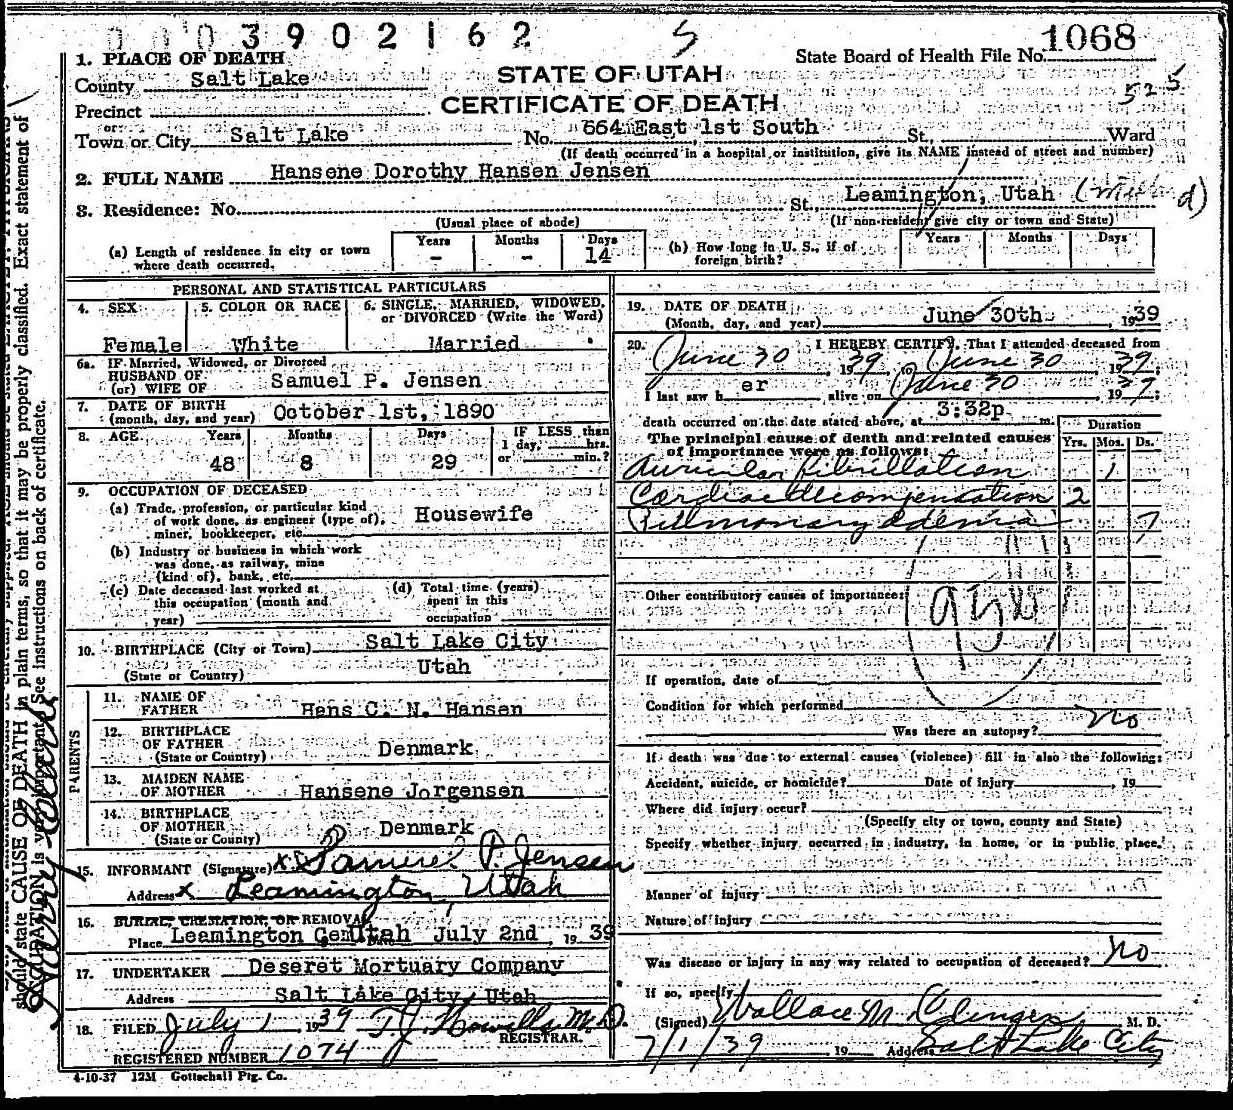 0003902162 S
1068
State Board of Health File No.
525
STATE OF UTAH
CERTIFICATE OF DEATH
1. PLACE OF DEATH
County Salt Lake
Precinct
or
Town or City Salt Lake No. 664 East 1st South St, Ward
(If death occurred in a hospital or institution, give its NAME instead of street and number)
2. FULL NAME Hansene Dorothy Hansen Jensen
3. Residence: No. St. Leamington, Utah
(Usual place of abode) (If non-resident give city or town and State)
(a) Length of residence in city or town where death occurred. Years - Months - Days 14
(b) How long in U. S., if of foreign birth? Years Months Days
PERSONAL AND STATISTICAL PARTICULARS
4. SEX Female
5. COLOR OR RACE White
6. SINGLE, MARRIED, WIDOWED, or DIVORCED (Write the Word) Married
6a. IF Married, Widowed, or Divorced
HUSBAND OF
(or) WIFE OF Samuel P. Jensen
7. DATE OF BIRTH
(month, day, and year) October 1st, 1890
8. AGE Years 48 Months 8 Days 29 IF LESS than 1 day, hrs. or min.?
9. OCCUPATION OF DECEASED
(a) Trade, profession, or particular kind
of work done, as engineer (type of),
miner, bookkeeper, etc. Housewife
(b) Industry or business in which work
was done, as railway, mine
(kind of), bank, etc.
(c) Date deceased last worked at
this occupation (month and
year)
(d) Total time (years)
spent in this
occupation
10. BIRTHPLACE (City or Town) Salt Lake City
(State or Country) Utah
PARENTS
11. NAME OF
FATHER Hans C. N. Hansen
12. BIRTHPLACE
OF FATHER
(State or Country) Denmark
13. MAIDEN NAME
OF MOTHER Hansene Jorgensen
14. BIRTHPLACE
OF MOTHER
(State or County) Denmark
15. INFORMANT (Signature) x Samuel P. Jensen
Address x Leamington, Utah
16. BURIAL, CREMATION, OR REMOVAL
Place Leamington Cem Utah July 2nd, 1939
17. UNDERTAKER Deseret Mortuary Company
Address Salt Lake City, Utah
18. FILED July 1, 1939 T. J. Howells M.D.
REGISTRAR.
REGISTERED NUMBER 1074
4-10-37 12M Gottschall Ptg. Co.
19. DATE OF DEATH
(Month, day, and year) June 30th, 1939
20. I HEREBY CERTIFY, That I attended deceased from
June 30, 1939, to June 30, 1939;
I last saw her alive on June 30 1939;
death occurred on the date stated above, at 3:32p m.
The principal cause of death and related causes
of importance were as follows:
Duration
Yrs. Mos. Ds.
Auricular fibrillation 1
Cardiac decompensation 2
Pulmonary edema 7
Other contributory causes of importance:
If operation, date of
Condition for which performed
Was there an autopsy? no
If death was due to external causes (violence) fill in also the following:
Accident, suicide, or homicide? Date of injury , 19
Where did injury occur?
(Specify city or town, county and State)
Specify whether injury occurred in industry, in home, or in public place.
Manner of injury
Nature of injury
Was disease or injury in any way related to occupation of deceased? no
If so, specify
(Signed) Wallace M. M. D.
7/1/39 19 Address Salt Lake City
should state CAUSE OF DEATH in plain terms, so that it may be properly classified. Exact statement of
OCCUPATION is very important. See instructions on back of certificate.